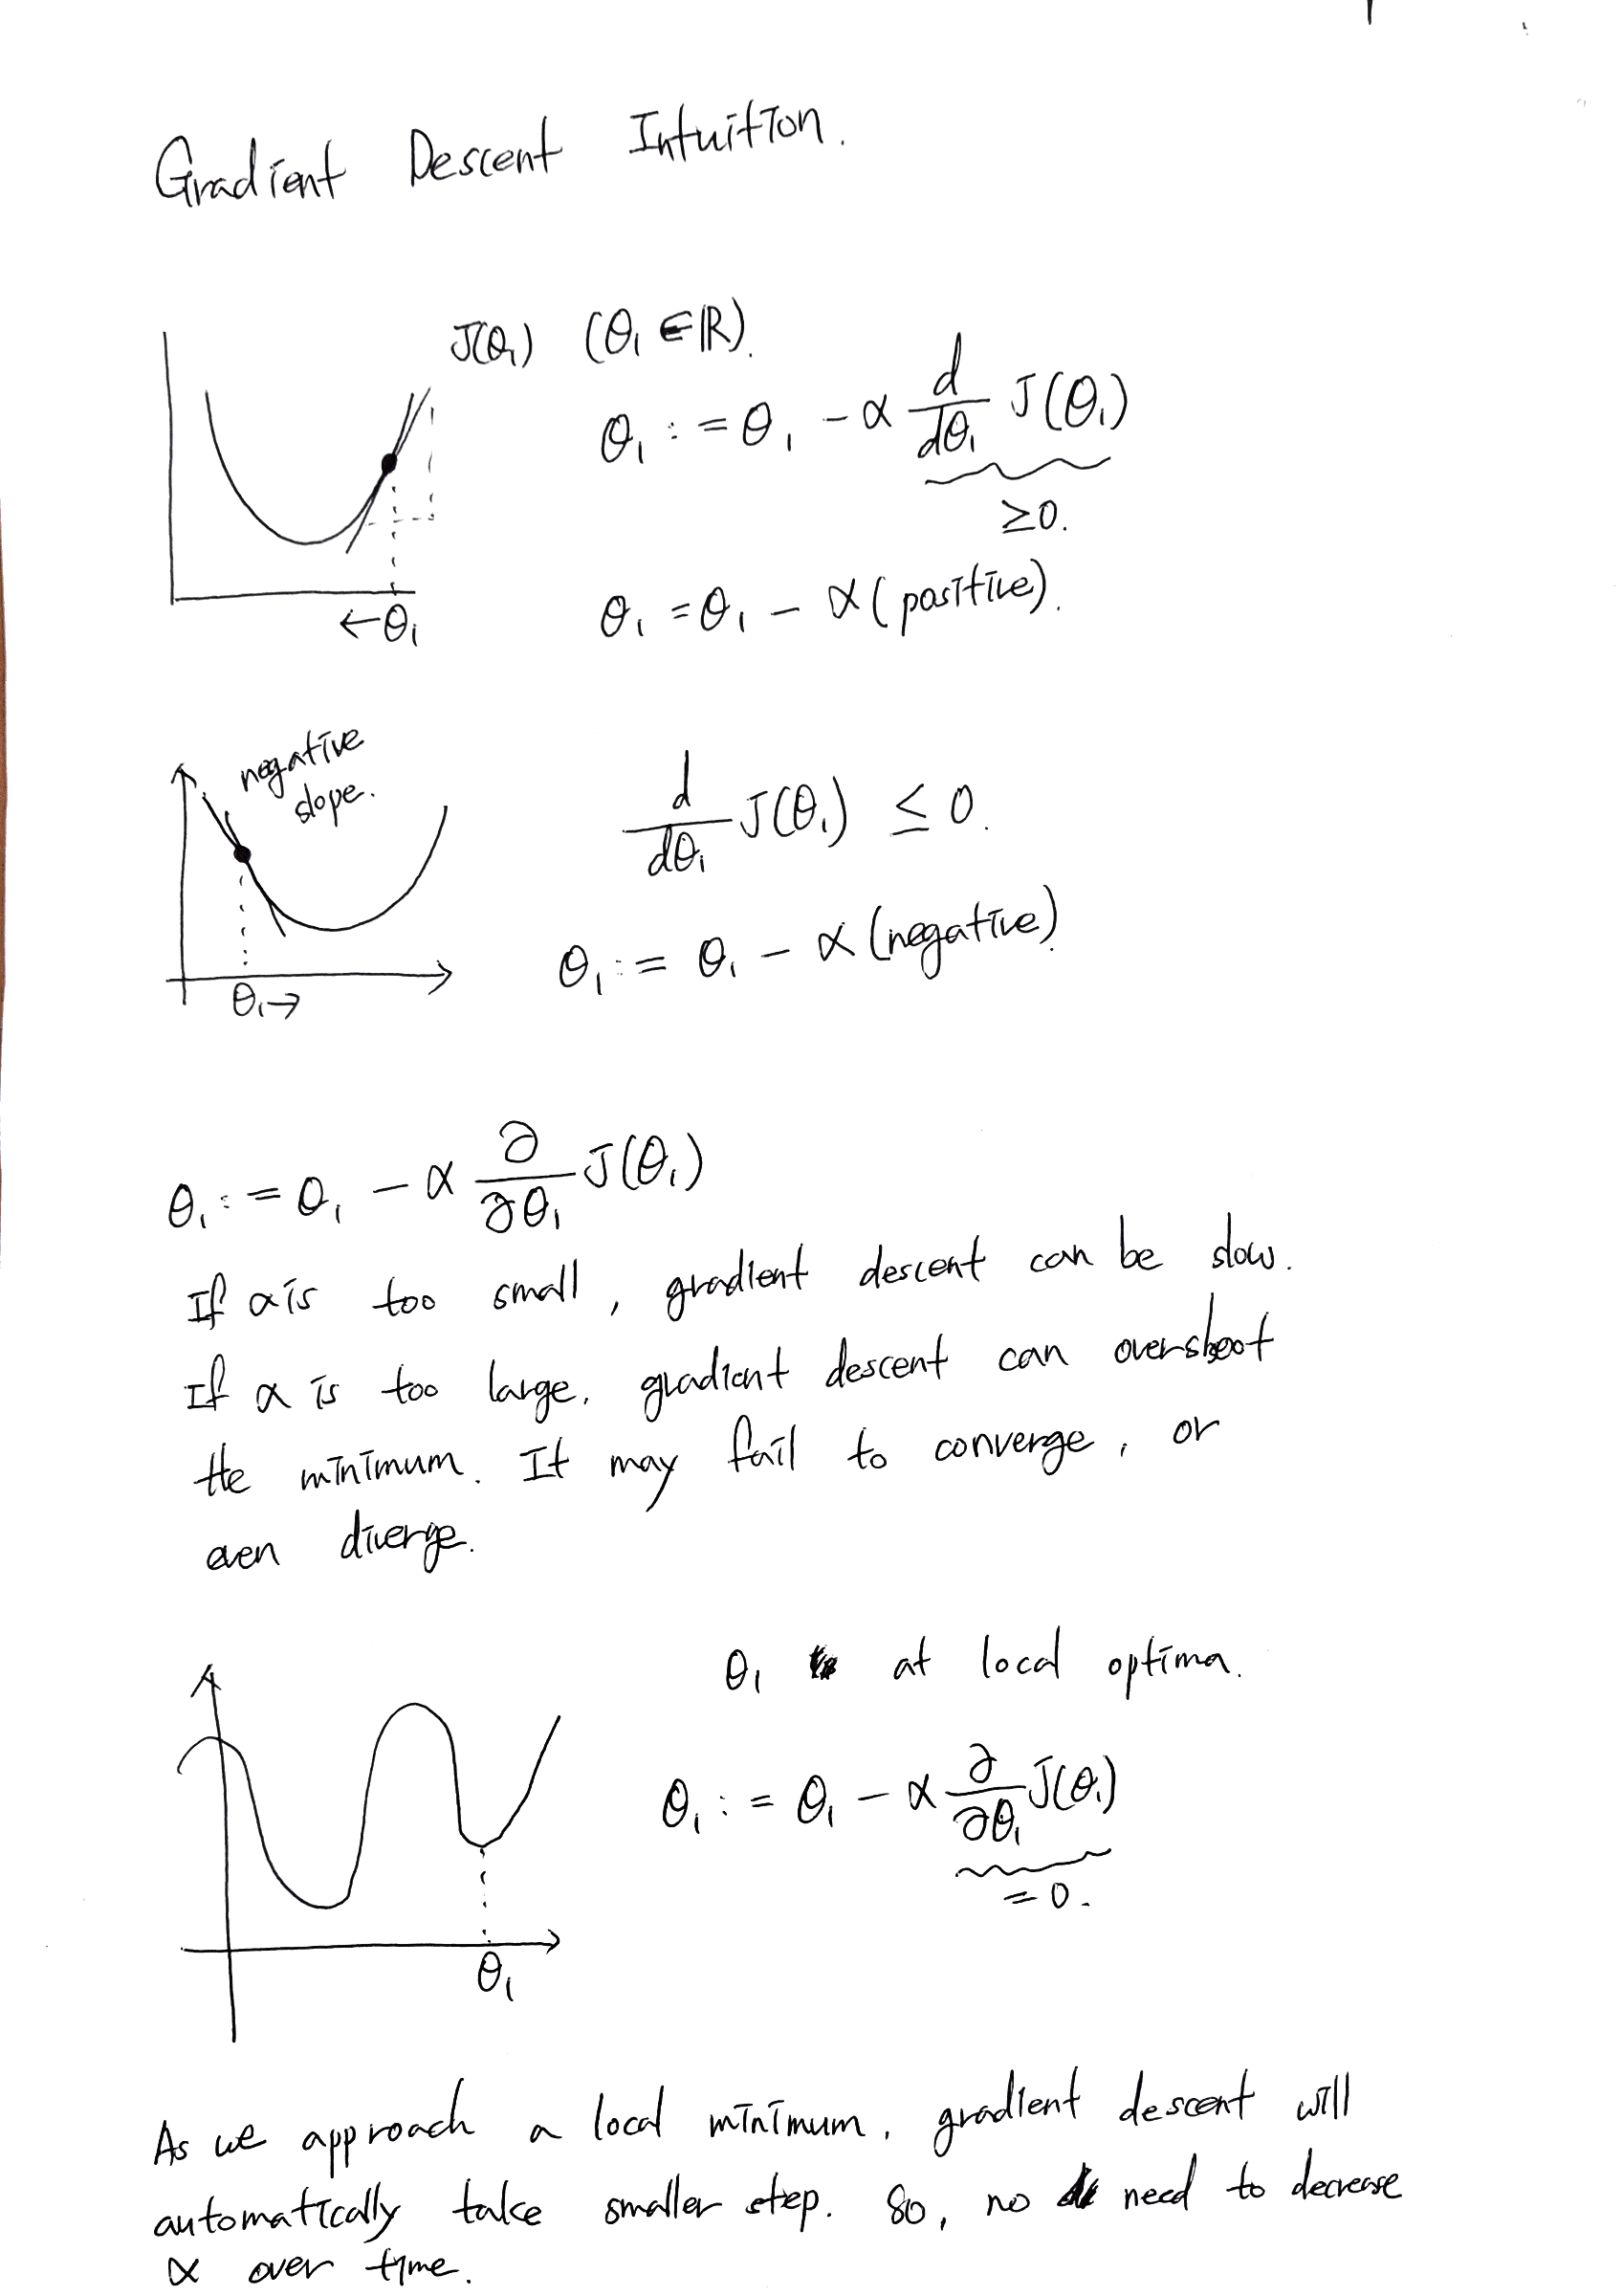 Gradient Descent Intuition.
J(θ₁) (θ₁ ∈ ℝ).
θ₁ := θ₁ - α d/dθ₁ J(θ₁)
≥0.
←θ₁
θ₁ = θ₁ - α (positive).
negative
slope.
d/dθ₁ J(θ₁) ≤ 0.
θ₁ := θ₁ - α (negative).
θ₁→
θ₁ := θ₁ - α ∂/∂θ₁ J(θ₁)
If α is too small, gradient descent can be slow.
If α is too large, gradient descent can overshoot
the minimum. It may fail to converge, or
even diverge.
θ₁ at local optima.
θ₁ := θ₁ - α ∂/∂θ₁ J(θ₁)
= 0.
θ₁
As we approach a local minimum, gradient descent will
automatically take smaller step. So, no need to decrease
α over time.